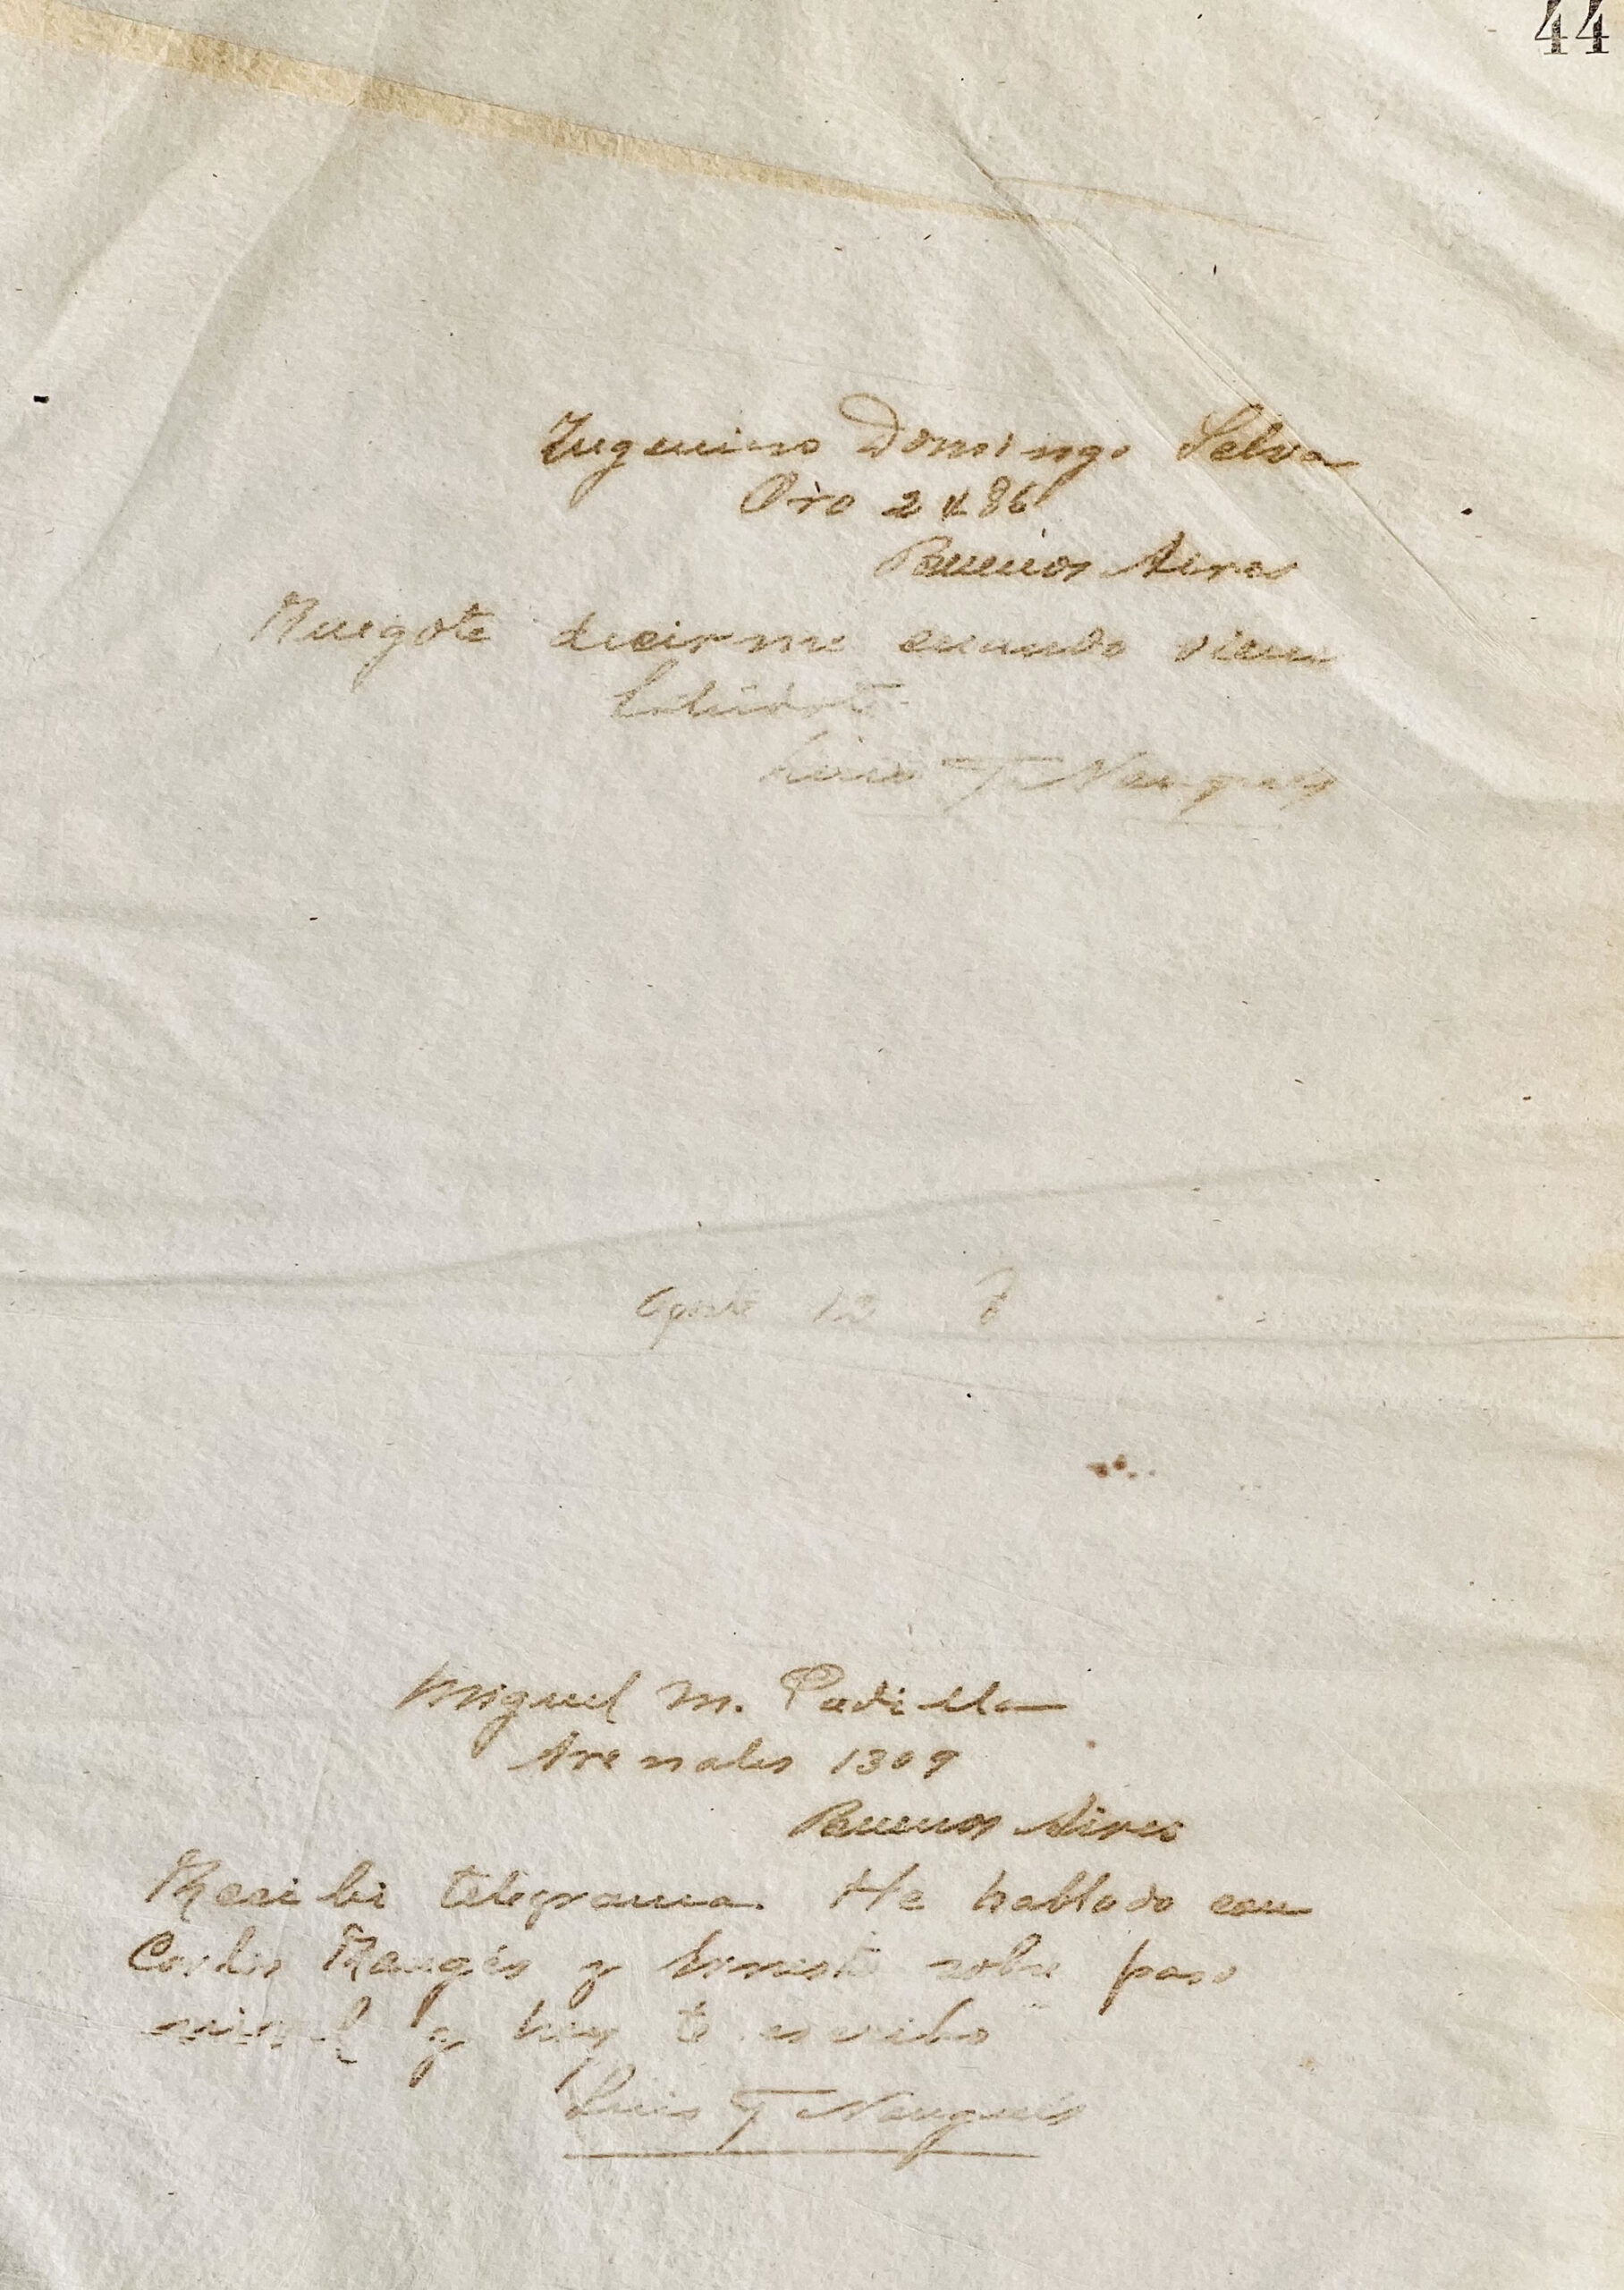 44
Ingeniero Domingo Selva
Oro 2486
Buenos Aires
Ruegote decirme cuando viene
Salúdote
Luis F Nougués
Agosto 12
Miguel M. Padilla
Arenales 1309
Buenos Aires
Recibi telegrama. He hablado con
Carlos Rougés y Ernesto sobre paso
nivel y hoy te escribo
Luis F Nougués